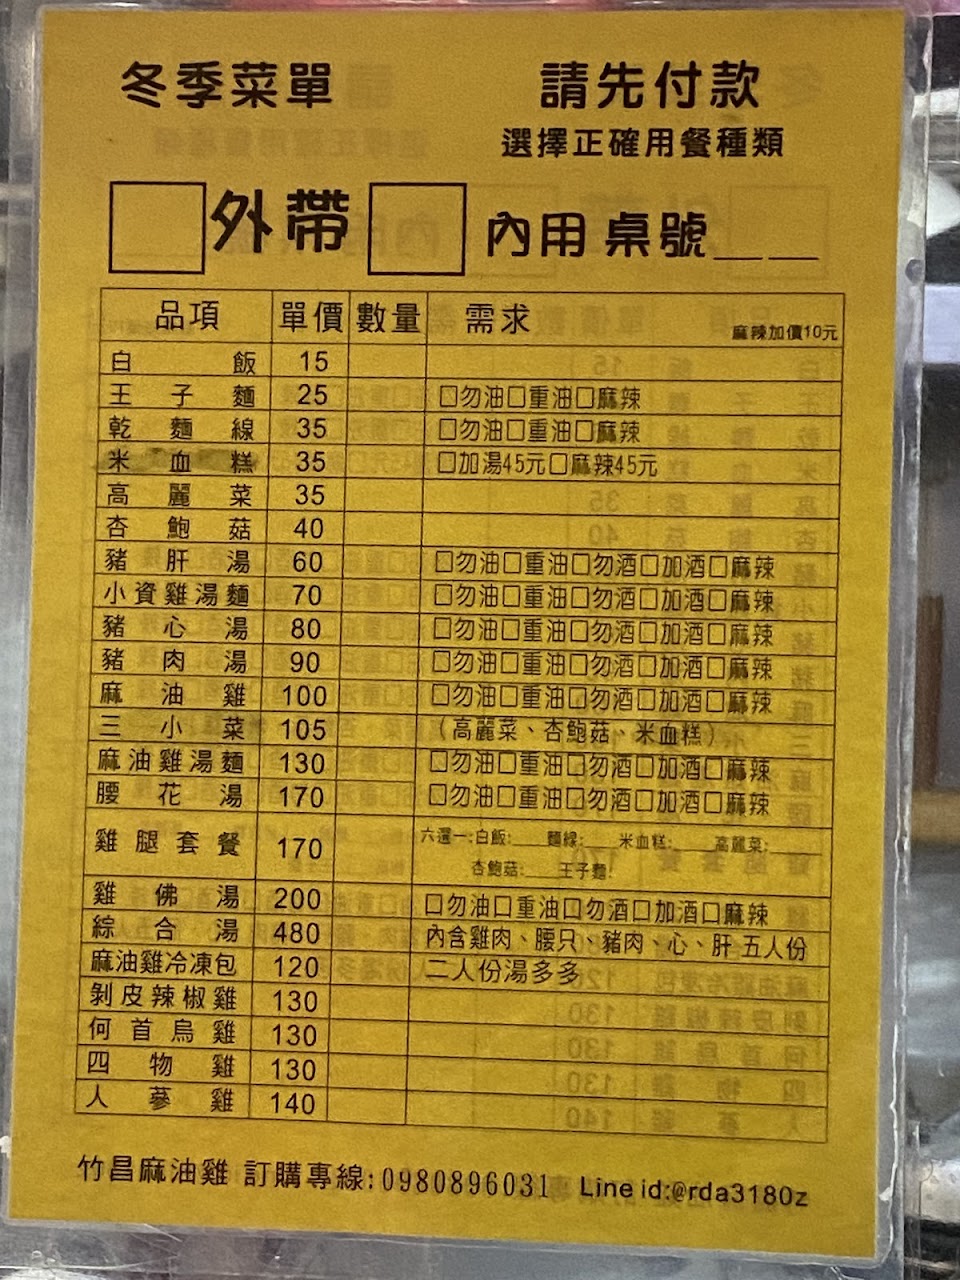 冬季菜單 請先付款
選擇正確用餐種類
□外帶 □內用 桌號____
品項 單價 數量 需求 麻辣加價10元
白飯 15
王子麵 25 □勿油□重油□麻辣
乾麵線 35 □勿油□重油□麻辣
米血糕 35 □加湯45元□麻辣45元
高麗菜 35
杏鮑菇 40
豬肝湯 60 □勿油□重油□勿酒□加酒□麻辣
小資雞湯麵 70 □勿油□重油□勿酒□加酒□麻辣
豬心湯 80 □勿油□重油□勿酒□加酒□麻辣
豬肉湯 90 □勿油□重油□勿酒□加酒□麻辣
麻油雞 100 □勿油□重油□勿酒□加酒□麻辣
三小菜 105 (高麗菜、杏鮑菇、米血糕)
麻油雞湯麵 130 □勿油□重油□勿酒□加酒□麻辣
腰花湯 170 □勿油□重油□勿酒□加酒□麻辣
雞腿套餐 170 六選一:白飯:___麵線:___米血糕:___高麗菜:___
杏鮑菇:___王子麵:
雞佛湯 200 □勿油□重油□勿酒□加酒□麻辣
綜合湯 480 內含雞肉、腰只、豬肉、心、肝 五人份
麻油雞冷凍包 120 二人份湯多多
剝皮辣椒雞 130
何首烏雞 130
四物雞 130
人蔘雞 140
竹昌麻油雞 訂購專線:0980896031 Line id:@rda3180z